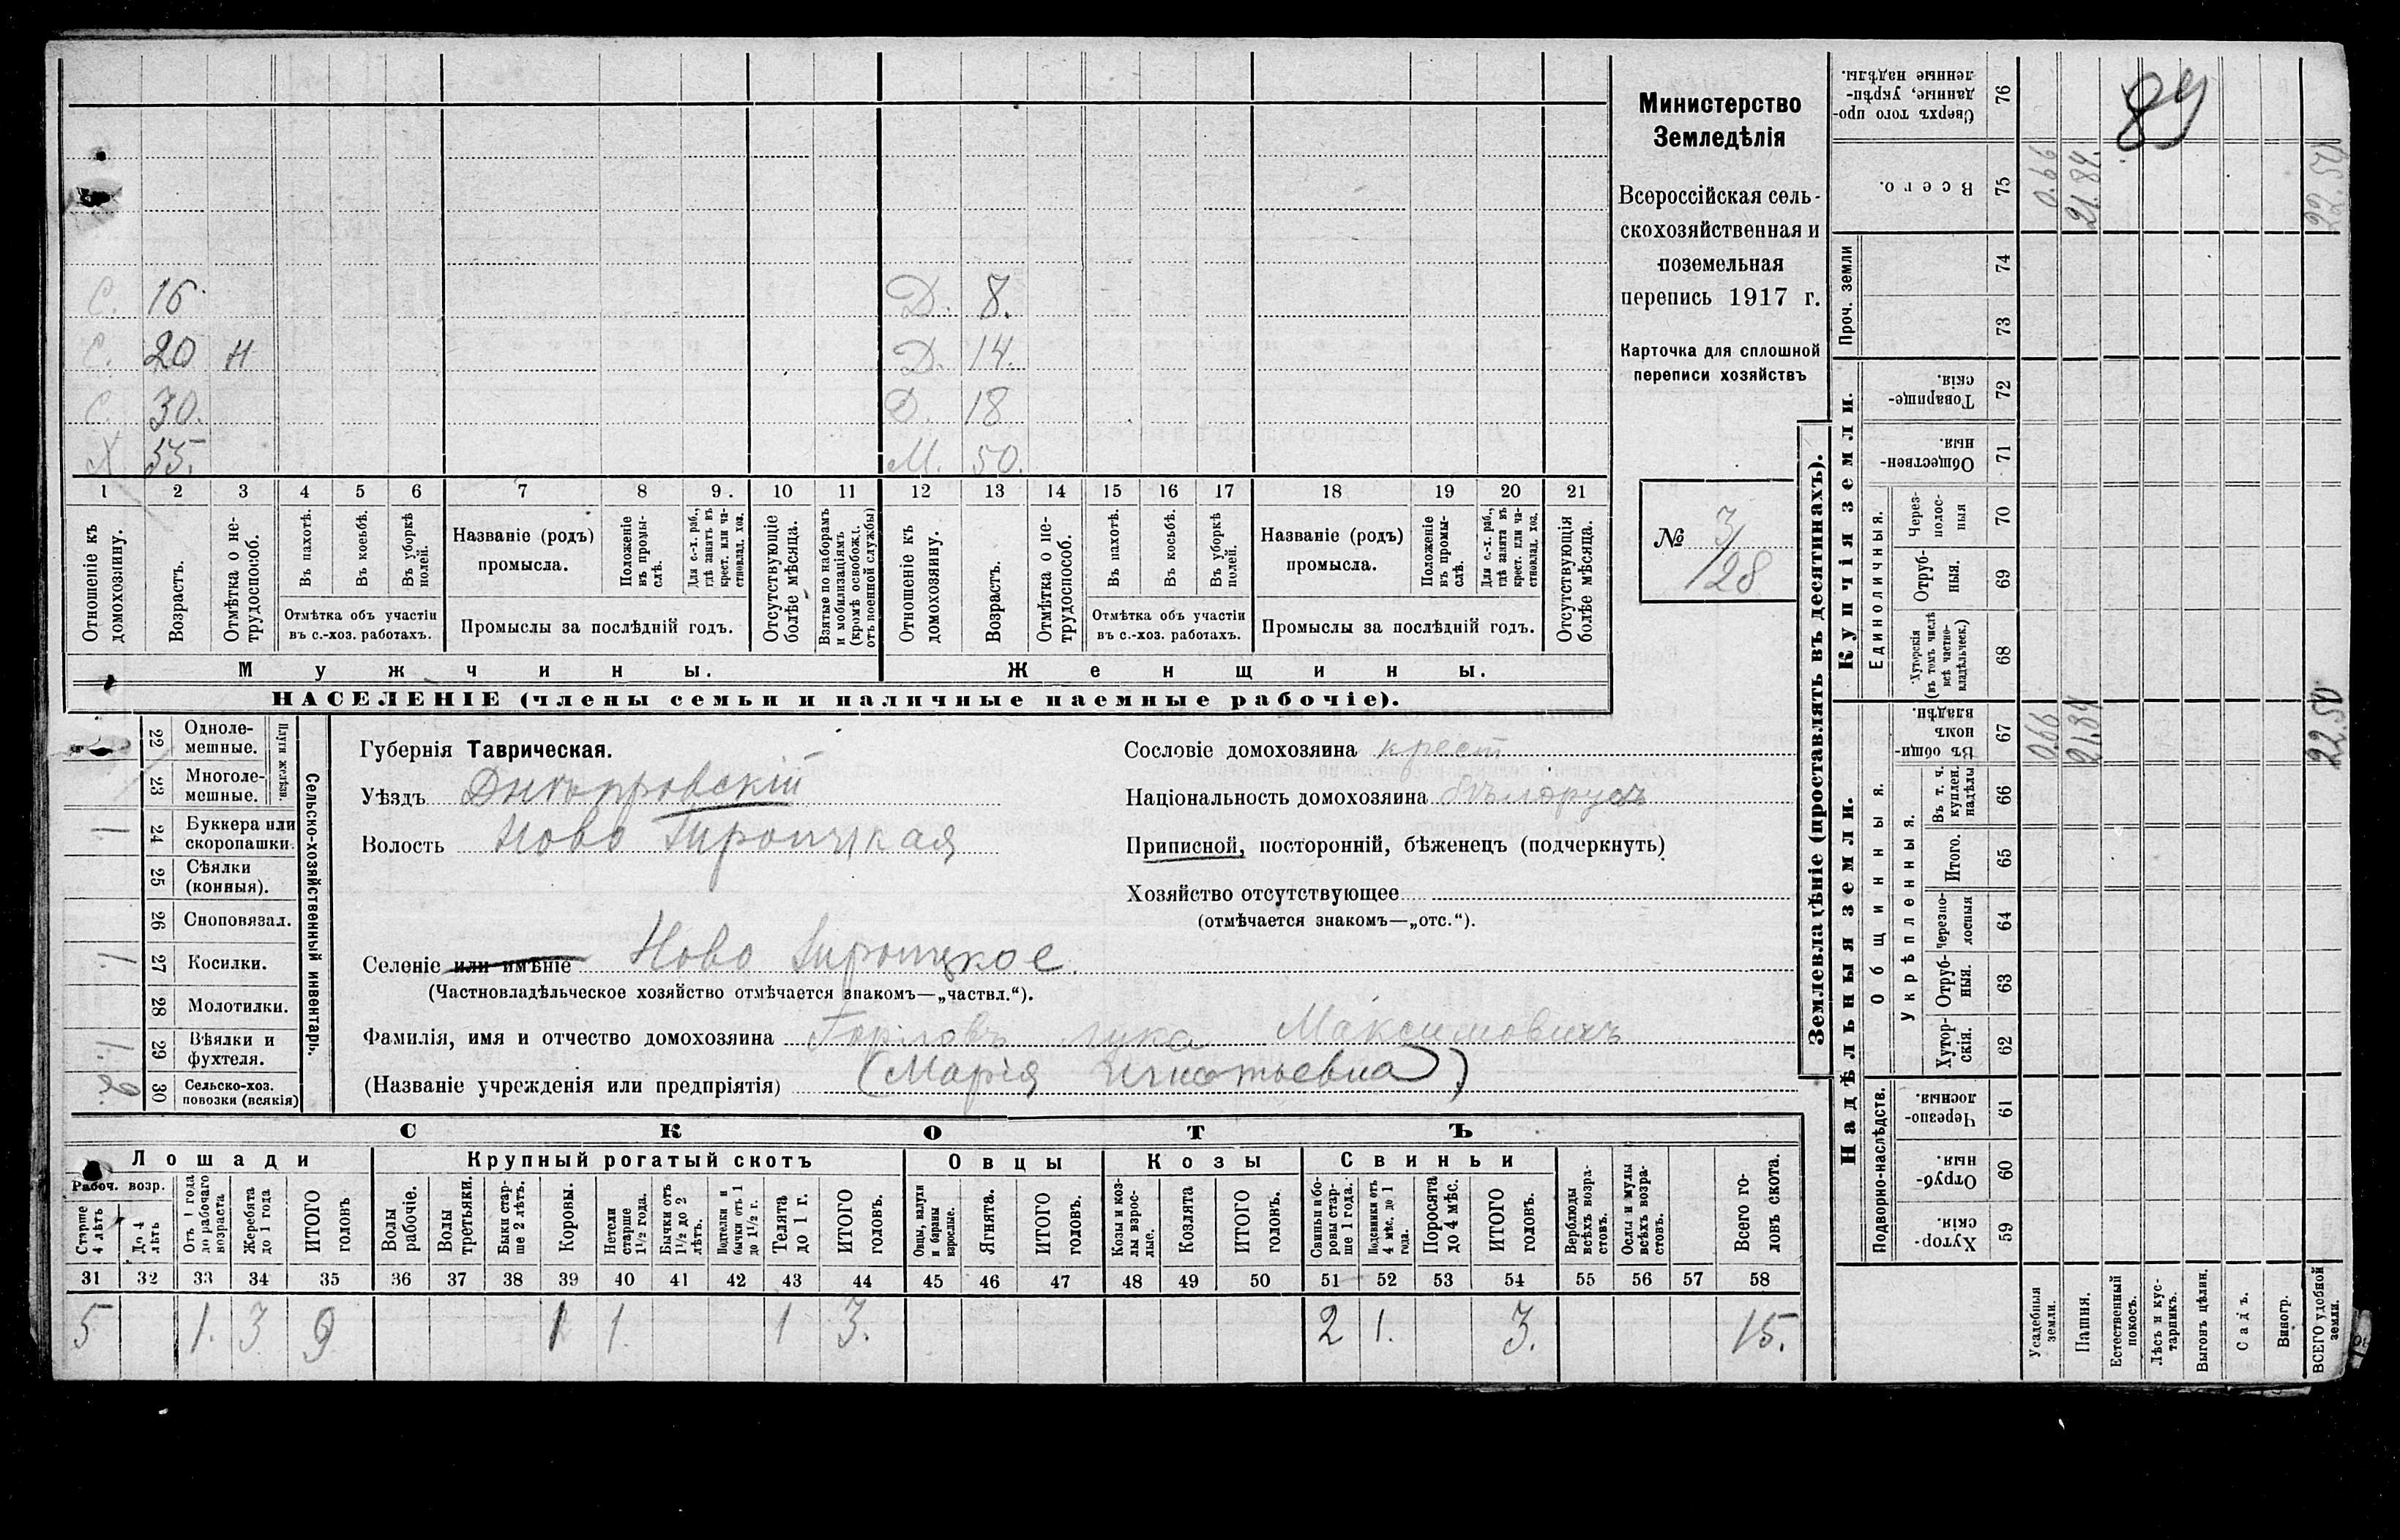 Министерство
Земледѣлія
Всероссійская сель-
скохозяйственная и
поземельная
перепись 1917 г.
Карточка для сплошной
переписи хозяйствъ
№ 3/128
89
С. 16 Д. 8.
С. 20 Н Д. 14.
С. 30. Д. 18
Х 55. М. 50.
1 2 3 4 5 6 7 8 9. 10 11 12 13 14 15 16 17 18 19 20 21
Отношеніе къ домохозяину.
Возрастъ.
Отмѣтка о не-трудоспособ.
Въ пахотѣ.
Въ косьбѣ.
Въ уборкѣ полей.
Отмѣтка объ участіи
въ с.-хоз. работахъ.
Названіе (родъ)
промысла.
Положеніе въ промы-слѣ.
Для с.-х. раб., гдѣ занятъ въ крест. или ча-стновлад. хоз.
Промыслы за послѣдній годъ.
Отсутствующіе болѣе мѣсяца.
Взятые по наборамъ и мобилизаціямъ (кромѣ освобожд. отъ военной службы)
Отношеніе къ домохозяину.
Возрастъ.
Отмѣтка о не-трудоспособ.
Въ пахотѣ.
Въ косьбѣ.
Въ уборкѣ полей.
Отмѣтка объ участіи
въ с.-хоз. работахъ.
Названіе (родъ)
промысла.
Положеніе въ промы-слѣ.
Для с.-х. раб., гдѣ занята въ крест. или ча-стновлад. хоз.
Промыслы за послѣдній годъ.
Отсутствующія болѣе мѣсяца.
Мужчины. Женщины.
НАСЕЛЕНІЕ (члены семьи и наличные наемные рабочіе).
Сельско-хозяйственный инвентарь.
Плуги желѣзн.
22 Одноле-мешные.
23 Многоле-мешные.
1 24 Буккера или скоропашки.
25 Сѣялки (конныя).
26 Сноповязал.
1. 27 Косилки.
28 Молотилки.
1. 29 Вѣялки и фухтеля.
2. 30 Сельско-хоз. повозки (всякія)
Губернія Таврическая.
Уѣздъ Днѣпровскій
Волость Ново Троицкая
Селеніе или имѣніе Ново Троицкое
(Частновладѣльческое хозяйство отмѣчается знакомъ—„частвл.“).
Фамилія, имя и отчество домохозяина Горловъ Лука Максимовичъ
(Названіе учрежденія или предпріятія) (Марія Игнатьевна)
Сословіе домохозяина крест
Національность домохозяина бѣлорусъ
Приписной, посторонній, бѣженецъ (подчеркнуть)
Хозяйство отсутствующее
(отмѣчается знакомъ—„отс.“).
СКОТЪ
Лошади Крупный рогатый скотъ Овцы Козы Свиньи
Рабоч. возр.
Старше 4 лѣтъ
До 4 лѣтъ
Отъ 1 года до рабочаго возраста
Жеребята до 1 года
ИТОГО головъ
Волы рабочіе.
Волы третьяки.
Быки стар-ше 2 лѣтъ.
Коровы.
Нетели старше 1½ года.
Бычки отъ 1½ до 2 лѣтъ.
Подтелки и бычки отъ 1 до 1½ г.
Телята до 1 г.
ИТОГО головъ.
Овцы, валухи и бараны взрослые.
Ягнята.
ИТОГО головъ.
Козы и коз-лы взрос-лые.
Козлята
ИТОГО головъ.
Свиньи и бо-ровы стар-ше 1 года.
Подсвинки отъ 4 мѣс. до 1 года.
Поросята до 4 мѣс.
ИТОГО головъ.
Верблюды всѣхъ возра-стовъ.
Ослы и мулы всѣхъ возра-стовъ.
Всего го-ловъ скота.
31 32 33 34 35 36 37 38 39 40 41 42 43 44 45 46 47 48 49 50 51 52 53 54 55 56 57 58
5 1. 3 9 1 1 1 3. 2 1. 3. 15.
Землевладѣніе (проставлять въ десятинахъ).
Проч. земли
Купчія земли.
Единоличныя.
Надѣльныя земли.
Общинныя.
Укрѣпленныя.
Подворно-наслѣдств.
Сверхъ того про-данные, укрѣп-ленные надѣлы. 76
Всего. 75 0.66 21.84. 22.50
74
73
Товарище-скія. 72
Обществен-ныя 71
Через-полос-ныя 70
Отруб-ныя. 69
Хуторскія (въ томъ числѣ всѣ частно-владѣльческ.) 68
Въ общин-номъ владѣн. 67 0.66 21.84 22.50
Въ т. ч. куплен. надѣлы 66
Итого. 65
Черезпо-лосныя 64
Отруб-ныя. 63
Хутор-скія. 62
Черезпо-лосныя. 61
Отруб-ныя. 60
Хутор-скія. 59
Усадебныя земли.
Пашня.
Естественный покосъ.
Лѣсъ и кус-тарникъ.
Выгонъ цѣлин.
Садъ.
Виногр.
ВСЕГО удобной земли.